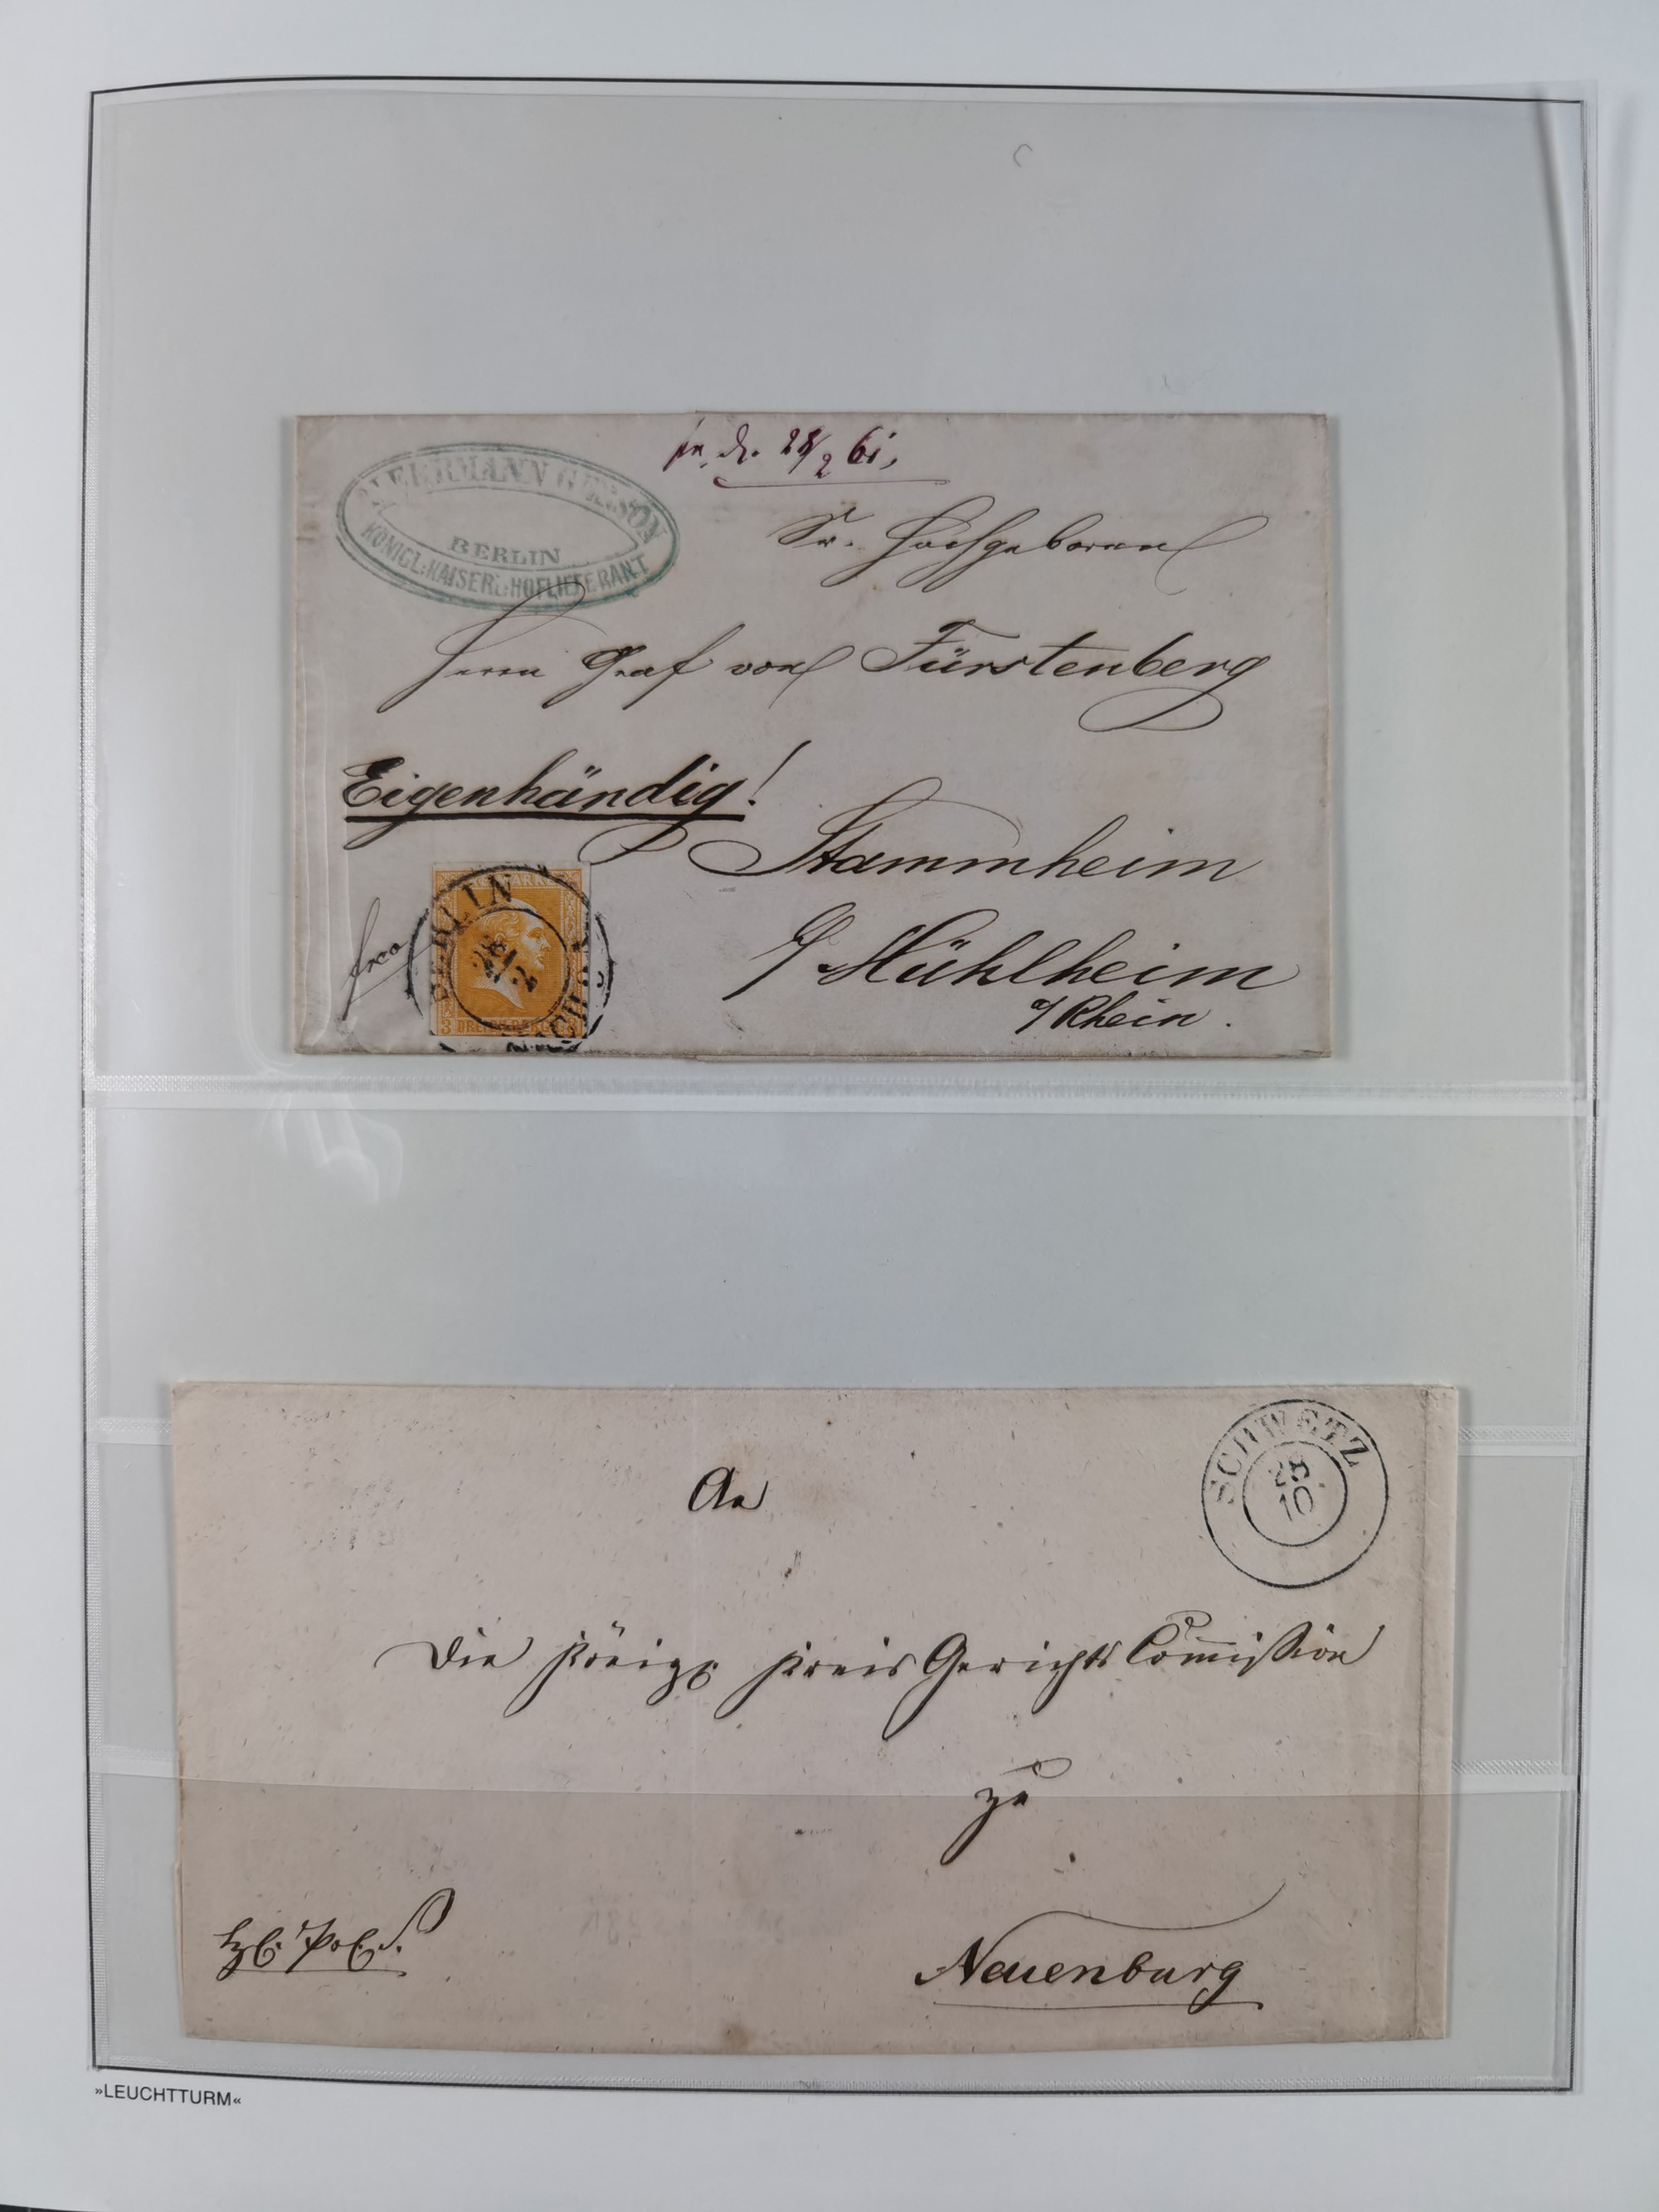 HERRMANN GERSON
BERLIN
KÖNIGL: KAISERL: HOFLIEFERANT
28/2 61,
Sr. Hochgeboren
Herrn Graf von Fürstenberg
Eigenhändig!
Stammheim
frco
BERLIN
28
2
3 DREI
a/ Mühlheim
a/ Rhein.
SCHWETZ
10
An
Die Königl: Kreis Gerichts Commißion
zu
Neuenburg
»LEUCHTTURM«